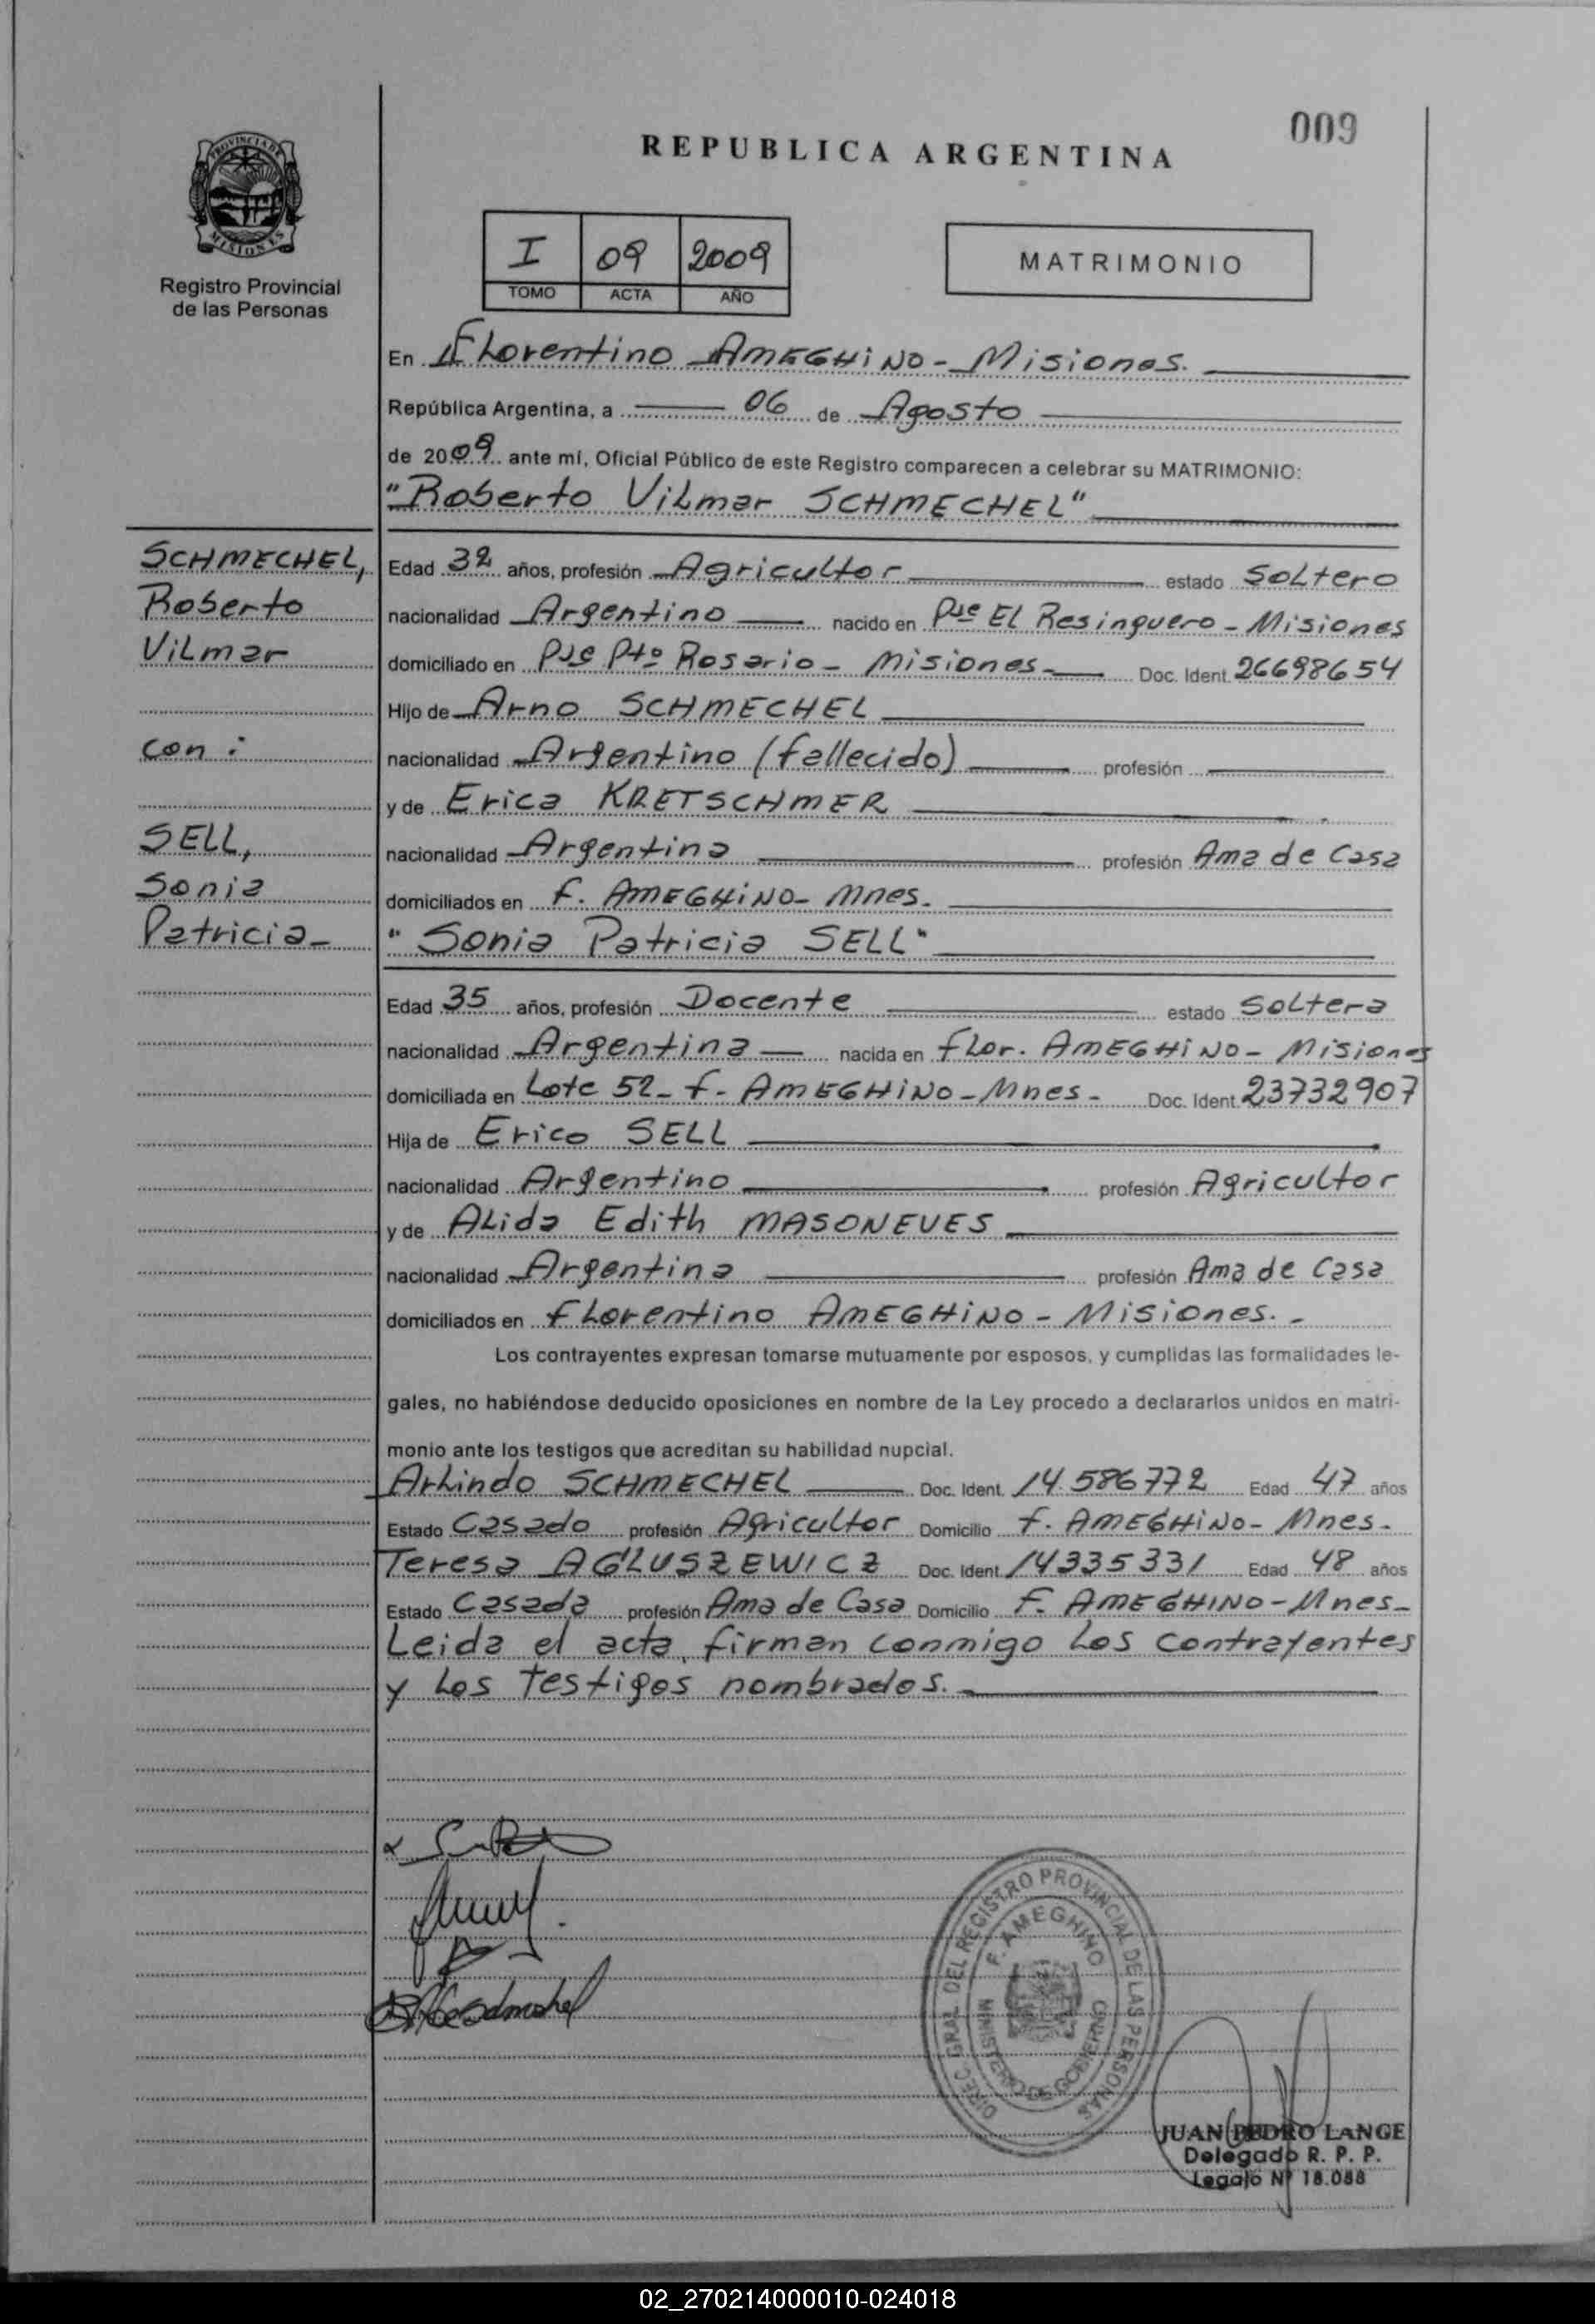 009
REPUBLICA ARGENTINA
PROVINCIA DE
MISIONES
Registro Provincial
de las Personas
I 09 2009
TOMO ACTA AÑO
MATRIMONIO
En Florentino AMEGHINO - Misiones.
República Argentina, a 06 de Agosto
de 2009 ante mí, Oficial Público de este Registro comparecen a celebrar su MATRIMONIO:
"Roberto Vilmar SCHMECHEL"
SCHMECHEL,
Roberto
Vilmar
con :
SELL,
Sonia
Patricia-
Edad 32 años, profesión Agricultor estado Soltero
nacionalidad Argentino nacido en Pje El Resinguero - Misiones
domiciliado en Pje Pto Rosario - Misiones- Doc. Ident. 26698654
Hijo de Arno SCHMECHEL
nacionalidad Argentino (fallecido) profesión
y de Erica KRETSCHMER
nacionalidad Argentina profesión Ama de Casa
domiciliados en F. AMEGHINO- Mnes.
"Sonia Patricia SELL"
Edad 35 años, profesión Docente estado Soltera
nacionalidad Argentina nacida en Flor. AMEGHINO- Misiones
domiciliada en Lote 52- F. AMEGHINO-Mnes- Doc. Ident. 23732907
Hija de Erico SELL
nacionalidad Argentino profesión Agricultor
y de ALida Edith MASONEVES
nacionalidad Argentina profesión Ama de Casa
domiciliados en Florentino AMEGHINO - Misiones. -
Los contrayentes expresan tomarse mutuamente por esposos, y cumplidas las formalidades le-
gales, no habiéndose deducido oposiciones en nombre de la Ley procedo a declararlos unidos en matri-
monio ante los testigos que acreditan su habilidad nupcial.
Arlindo SCHMECHEL Doc. Ident. 14.586772 Edad 47 años
Estado Casado profesión Agricultor Domicilio F. AMEGHINO- Mnes-
Teresa AGLUSZEWICZ Doc. Ident. 14335331 Edad 48 años
Estado Casada profesión Ama de Casa Domicilio F. AMEGHINO-Mnes-
Leida el acta, firman conmigo los contrayentes
y los testigos nombrados.-
DIREC. GRAL. DEL REGISTRO PROVINCIAL DE LAS PERSONAS
F. AMEGHINO
MINISTERIO DE GOBIERNO
JUAN PEDRO LANGE
Delegado R. P. P.
Legajo Nº 18.088
02_270214000010-024018